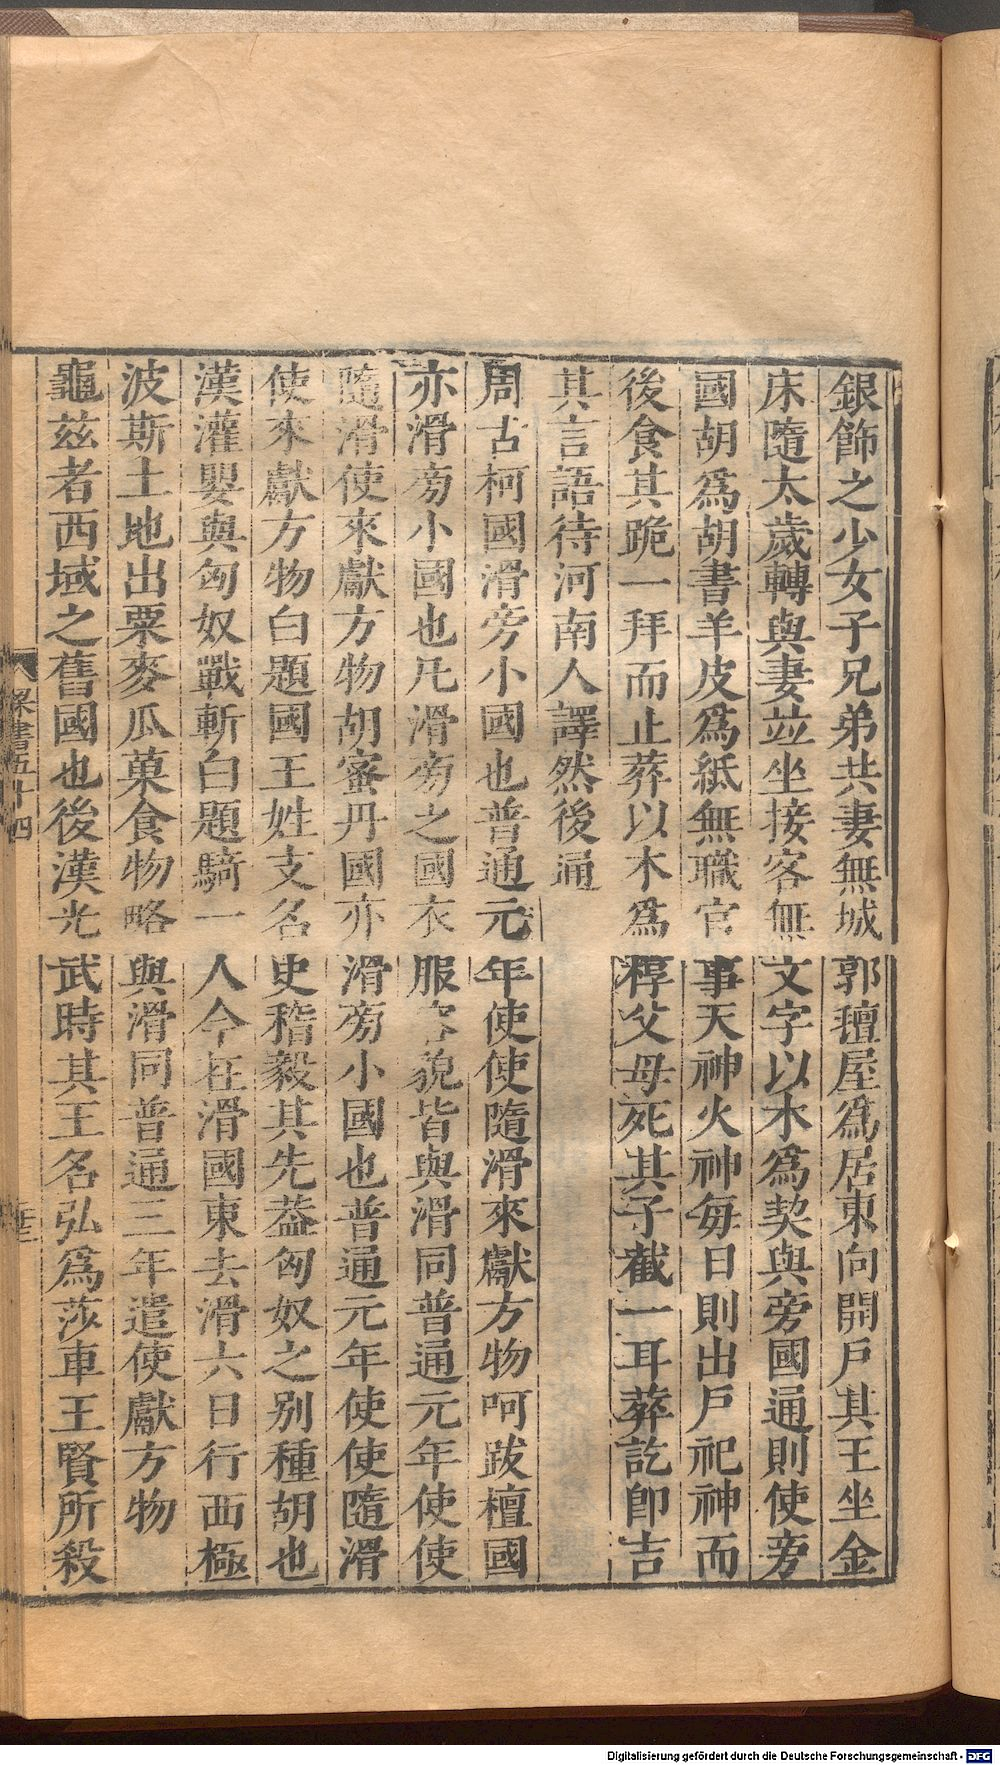 銀飾之少女子兄弟共妻無城郭氊屋爲居東向開戶其王坐金
床隨太歲轉與妻並坐接客無文字以木爲契與旁國通則使旁
國胡爲胡書羊皮爲紙無職官事天神火神每日則出戶祀神而
後食其跪一拜而止葬以木爲椁父母死其子截一耳葬訖卽吉
其言語待河南人譯然後通
周古柯國滑旁小國也普通元年使使隨滑來獻方物呵跋檀國
亦滑旁小國也凡滑旁之國衣服容貌皆與滑同普通元年使使
隨滑使來獻方物胡蜜丹國亦滑旁小國也普通元年使使隨滑
使來獻方物白題國王姓支名史稽毅其先葢匈奴之別種胡也
漢灌嬰與匈奴戰斬白題騎一人今在滑國東去滑六日行西極
波斯土地出粟麥瓜菓食物略與滑同普通三年遣使獻方物
龜茲者西域之舊國也後漢光武時其王名弘爲莎車王賢所殺
梁書五十四
Digitalisierung gefördert durch die Deutsche Forschungsgemeinschaft - DFG